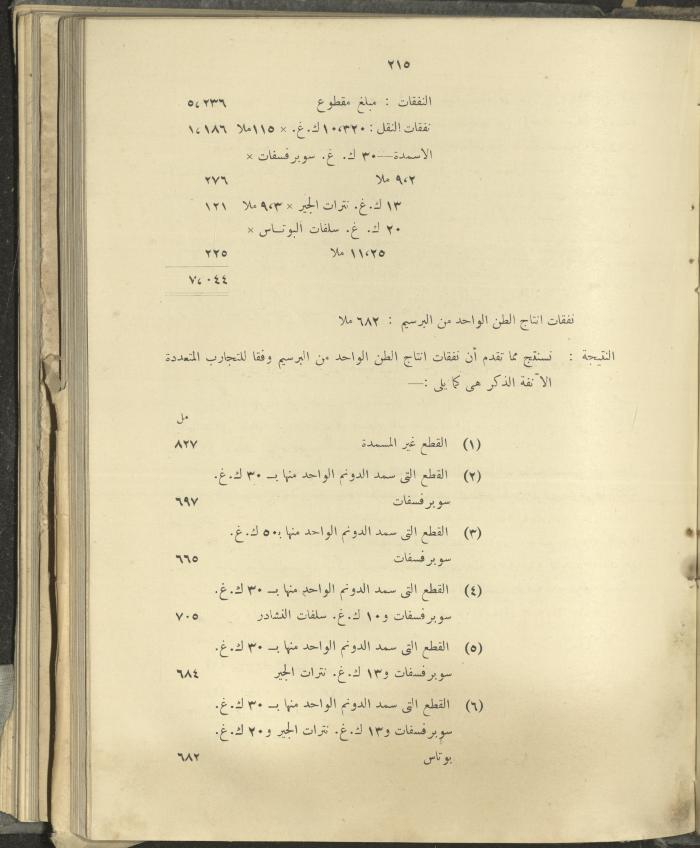 ٢١٥
النفقات : مبلغ مقطوع ٥،٢٣٦
نفقات النقل : ١٠،٣٢٠ ك.غ. × ١١٥ ملا ١،١٨٦
الاسمدة — ٣٠ ك. غ. سوبر فسفات ×
٩،٢ ملا ٢٧٦
١٣ ك.غ. نترات الجير × ٩،٣ ملا ١٢١
٢٠ ك. غ. سلفات البوتـاس ×
١١،٢٥ ملا ٢٢٥
٧،٠٤٤
نفقات انتاج الطن الواحد من البرسيم : ٦٨٢ ملا
النتيجة : نستنتج مما تقدم أن نفقات انتاج الطن الواحد من البرسيم وفقا للتجارب المتعددة
الآنفة الذكر هى كما يلى :—
مل
(١) القطع غير المسمدة ٨٢٧
(٢) القطع التى سمد الدونم الواحد منها بـ ٣٠ ك.غ.
سوبر فسفات ٦٩٧
(٣) القطع التى سمد الدونم الواحد منها بـ ٥٠ ك.غ.
سوبر فسفات ٦٦٥
(٤) القطع التى سمد الدونم الواحد منها بـ ٣٠ ك.غ.
سوبر فسفات و ١٠ ك.غ. سلفات النشادر ٧٠٥
(٥) القطع التى سمد الدونم الواحد منها بـ ٣٠ ك.غ.
سوبر فسفات و ١٣ ك.غ. نترات الجير ٦٨٤
(٦) القطع التى سمد الدونم الواحد منها بـ ٣٠ ك.غ.
سوبر فسفات و ١٣ ك.غ. نترات الجير و ٢٠ ك.غ.
بوتاس ٦٨٢